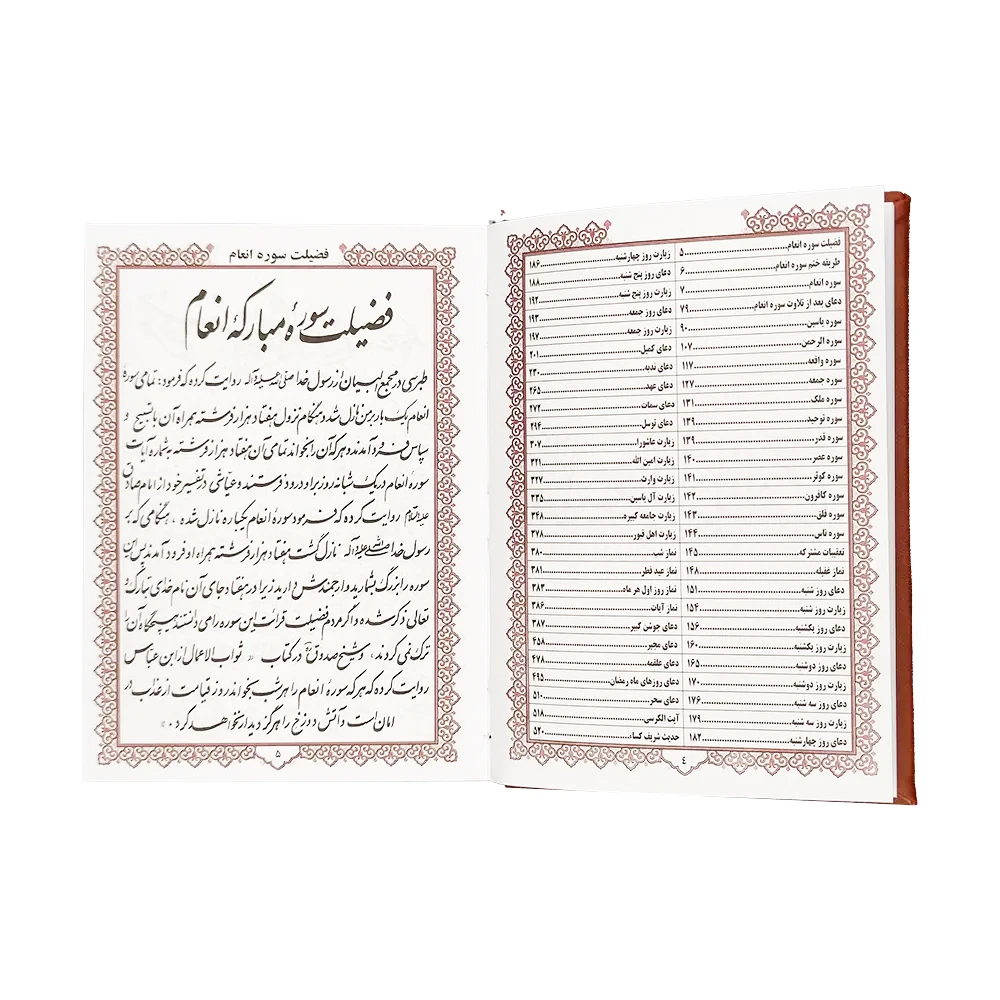 فضیلت سوره انعام..........۵
طریقه ختم سوره انعام..........۶
سوره انعام..........۷
دعای بعد از تلاوت سوره انعام..........۷۹
سوره یاسین..........۹۰
سوره الرحمن..........۱۰۷
سوره واقعه..........۱۱۷
سوره جمعه..........۱۲۷
سوره ملک..........۱۳۱
سوره توحید..........۱۳۹
سوره قدر..........۱۳۹
سوره عصر..........۱۴۰
سوره کوثر..........۱۴۱
سوره کافرون..........۱۴۲
سوره فلق..........۱۴۳
سوره ناس..........۱۴۴
تعقیبات مشترکه..........۱۴۵
نماز غفیله..........۱۴۸
دعای روز شنبه..........۱۵۱
زیارت روز شنبه..........۱۵۴
دعای روز یکشنبه..........۱۵۶
زیارت روز یکشنبه..........۱۶۰
دعای روز دوشنبه..........۱۶۵
زیارت روز دوشنبه..........۱۷۰
دعای روز سه شنبه..........۱۷۶
زیارت روز سه شنبه..........۱۷۹
دعای روز چهارشنبه..........۱۸۲
زیارت روز چهارشنبه..........۱۸۶
دعای روز پنج شنبه..........۱۸۸
زیارت روز پنج شنبه..........۱۹۲
دعای روز جمعه..........۱۹۳
زیارت روز جمعه..........۱۹۷
دعای کمیل..........۲۰۱
دعای ندبه..........۲۳۰
دعای عهد..........۲۶۵
دعای سمات..........۲۷۲
دعای توسل..........۲۹۴
زیارت عاشورا..........۳۰۷
زیارت امین الله..........۳۲۱
زیارت وارث..........۳۲۷
زیارت آل یاسین..........۳۳۵
زیارت جامعه کبیره..........۳۴۸
زیارت اهل قبور..........۳۷۸
نماز شب..........۳۸۰
نماز عید فطر..........۳۸۱
نماز روز اول هر ماه..........۳۸۳
نماز آیات..........۳۸۶
دعای جوشن کبیر..........۳۸۷
دعای مجیر..........۴۵۸
دعای علقمه..........۴۷۸
دعای روزهای ماه رمضان..........۴۹۵
دعای سحر..........۵۱۰
آیت الکرسی..........۵۱۸
حدیث شریف کساء..........۵۲۰
٤
فضیلت سوره انعام
فضیلت سورهٔ مبارکهٔ انعام
طبرسی در مجمع البیان از رسول خدا صلی الله علیه و آله روایت کرده که فرمود: تمامی سوره
انعام یک بار بر من نازل شد و هنگام نزول هفتاد هزار فرشته همراه آن با تسبیح و
سپاس فرود آمدند و هر که آن را بخواند تمامی آن هفتاد هزار فرشته به شماره آیات
سورهٔ انعام در یک شبانه روز بر او درود فرستند و عیاشی در تفسیر خود از امام صادق
علیه السلام روایت کرده که فرمود سورهٔ انعام یکباره نازل شده، هنگامی که بر
رسول خدا صلی الله علیه و آله نازل گشت هفتاد هزار فرشته همراه او فرود آمدند پس این
سوره را بزرگ بشمارید و ارجمندش دارید زیرا در هفتاد جای آن نام خدای تبارک و
تعالی ذکر شده و اگر مردم فضیلت قرائت این سوره را می دانستند هیچگاه آن را
ترک نمی کردند، و شیخ صدوق در کتاب « ثواب الاعمال از ابن عباس
روایت کرده که هر که سورهٔ انعام را هر شب بخواند روز قیامت از عذاب در
امان است و آتش دوزخ را هرگز دیدار نخواهد کرد.»
۵